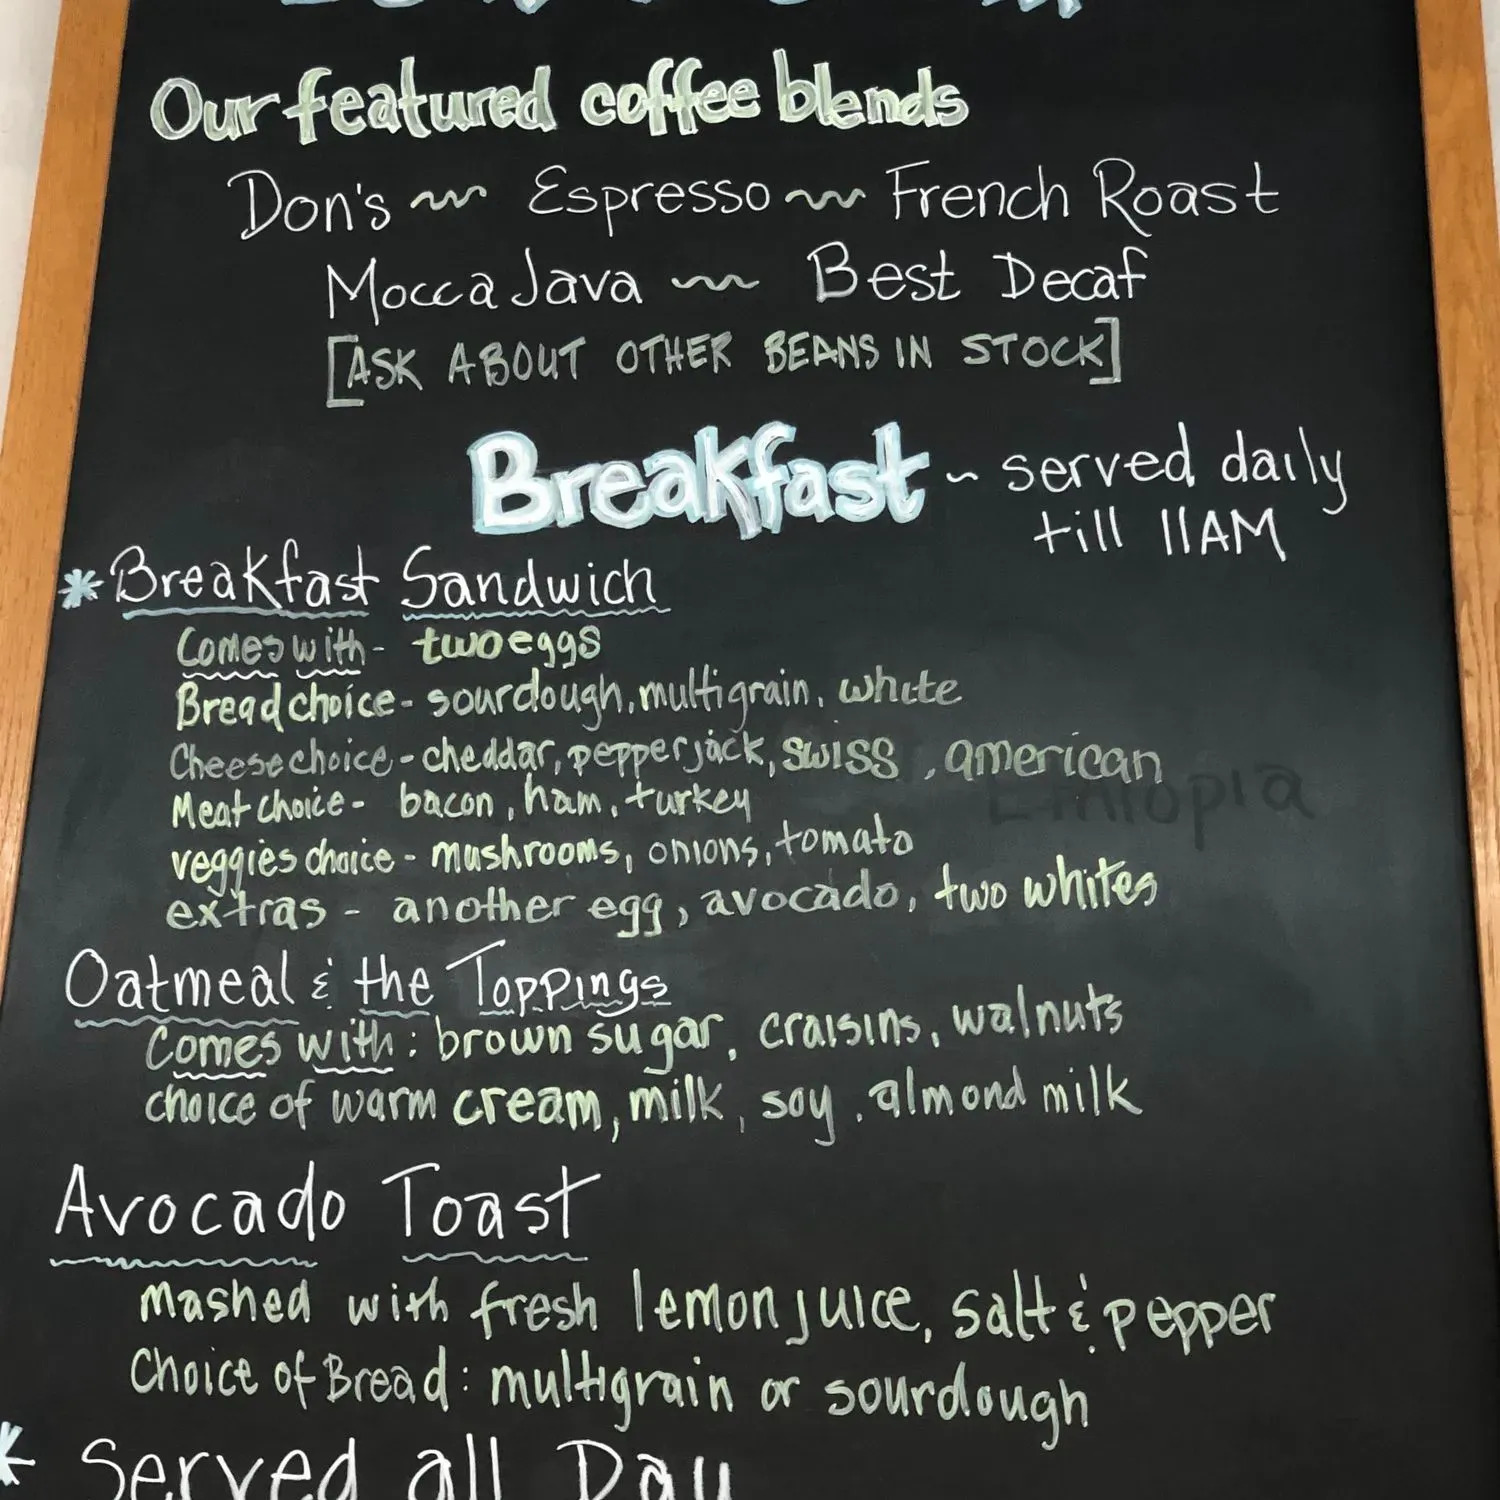 Our featured coffee blends
Don's ~ Espresso ~ French Roast
Mocca Java ~ Best Decaf
[ASK ABOUT OTHER BEANS IN STOCK]
Breakfast ~ served daily
till 11AM
* Breakfast Sandwich
Comes with - two eggs
Bread choice - sourdough, multigrain, white
Cheese choice - cheddar, pepperjack, swiss, american
Meat choice - bacon, ham, turkey
Ethiopia
veggies choice - mushrooms, onions, tomato
extras - another egg, avocado, two whites
Oatmeal & the Toppings
Comes with: brown sugar, craisins, walnuts
choice of warm cream, milk, soy, almond milk
Avocado Toast
Mashed with fresh lemon juice, salt & pepper
Choice of Bread: multigrain or sourdough
* Served all Day